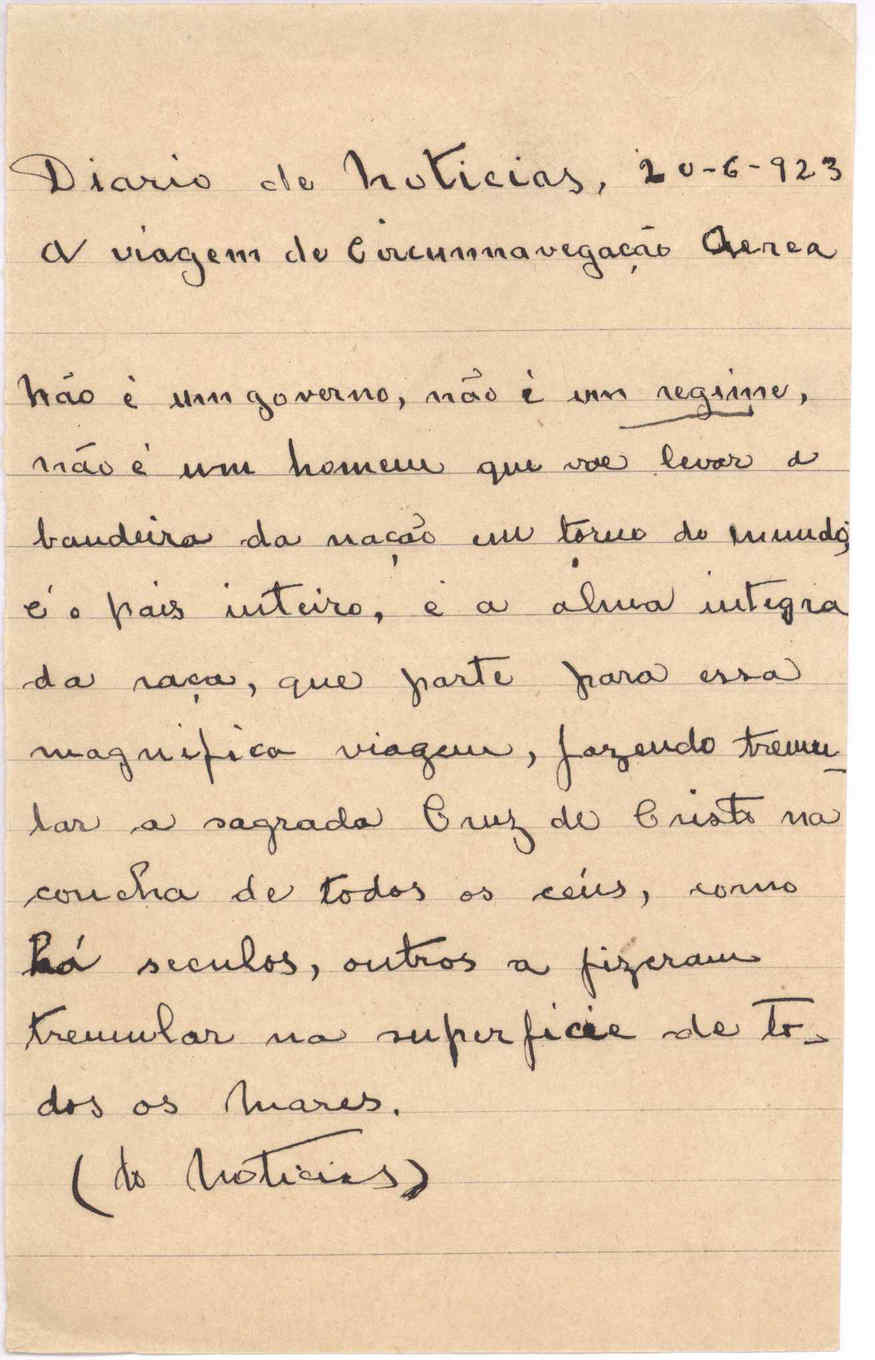 Diario de Noticias, 20-6-923
A viagem de Circumnavegação Aerea
Não é um governo, não é um regime,
não é um homem que vae levar a
bandeira da nação em torno do mundo;
é o país inteiro, é a alma integra
da raça, que parte para essa
magnifica viagem, fazendo tremu-
lar a sagrada Cruz de Cristo na
concha de todos os céus, como
há seculos, outros a fizeram
tremular na superficie de to-
dos os mares.
( Noticias)